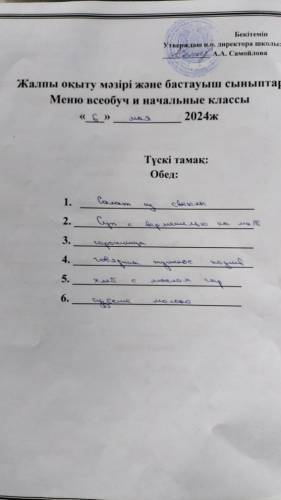 Бекітемін
Утверждаю и.о. директора школы:
А.А. Самойлова
Жалпы оқыту мәзірі және бастауыш сыныптар
Меню всеобуч и начальные классы
« 6 » мая 2024ж
Түскі тамақ:
Обед:
1. Салат из свеклы
2. Суп с вермишелью на
3. горошница
4. говядина тушеное
5. хлеб с маслом сыр
6. молоко